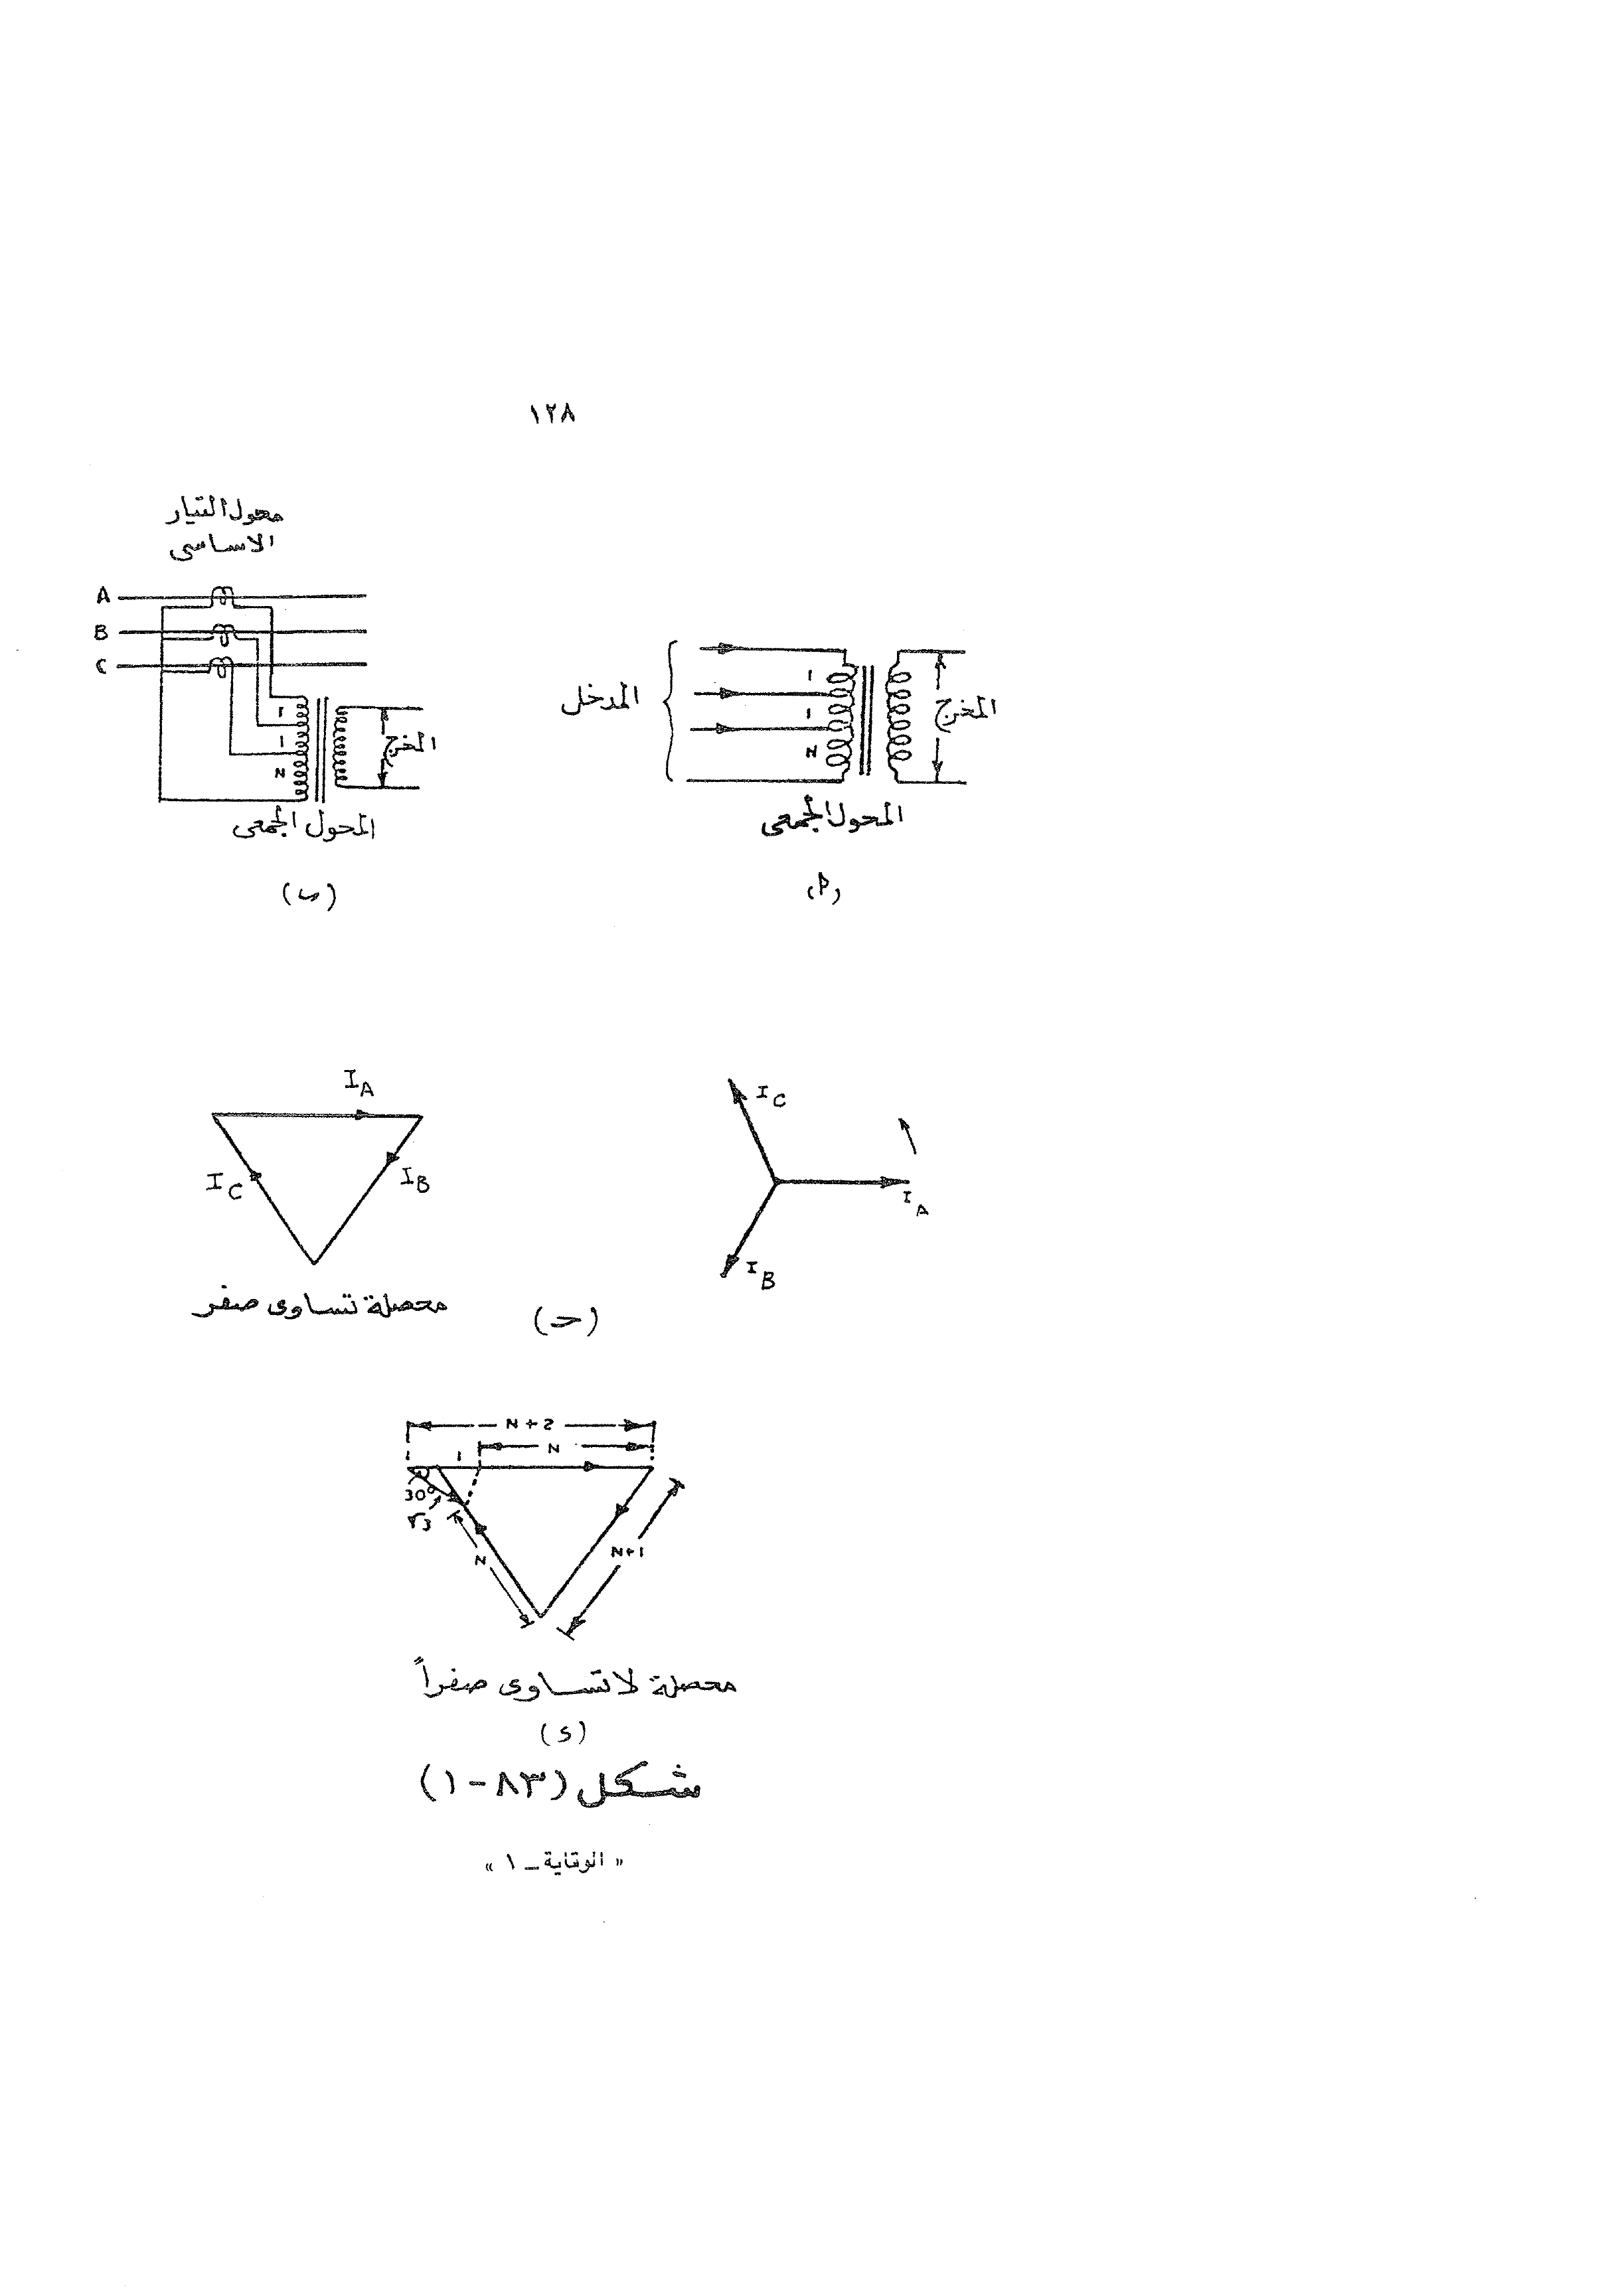 ١٢٨
محول التيار
الاساسى
A
B
C
1
1
N
المخرج
المحول الجمعى
(ب)
المدخل
1
1
N
المخرج
المحول الجمعى
(أ)
I_A
I_C
I_B
محصلة تساوى صفر
I_C
I_A
I_B
(حـ)
N+2
1
N
30°
√3
N
N+1
محصلة لا تساوى صفراً
(د)
شكل (٨٣-١)
« الوقاية_١ »